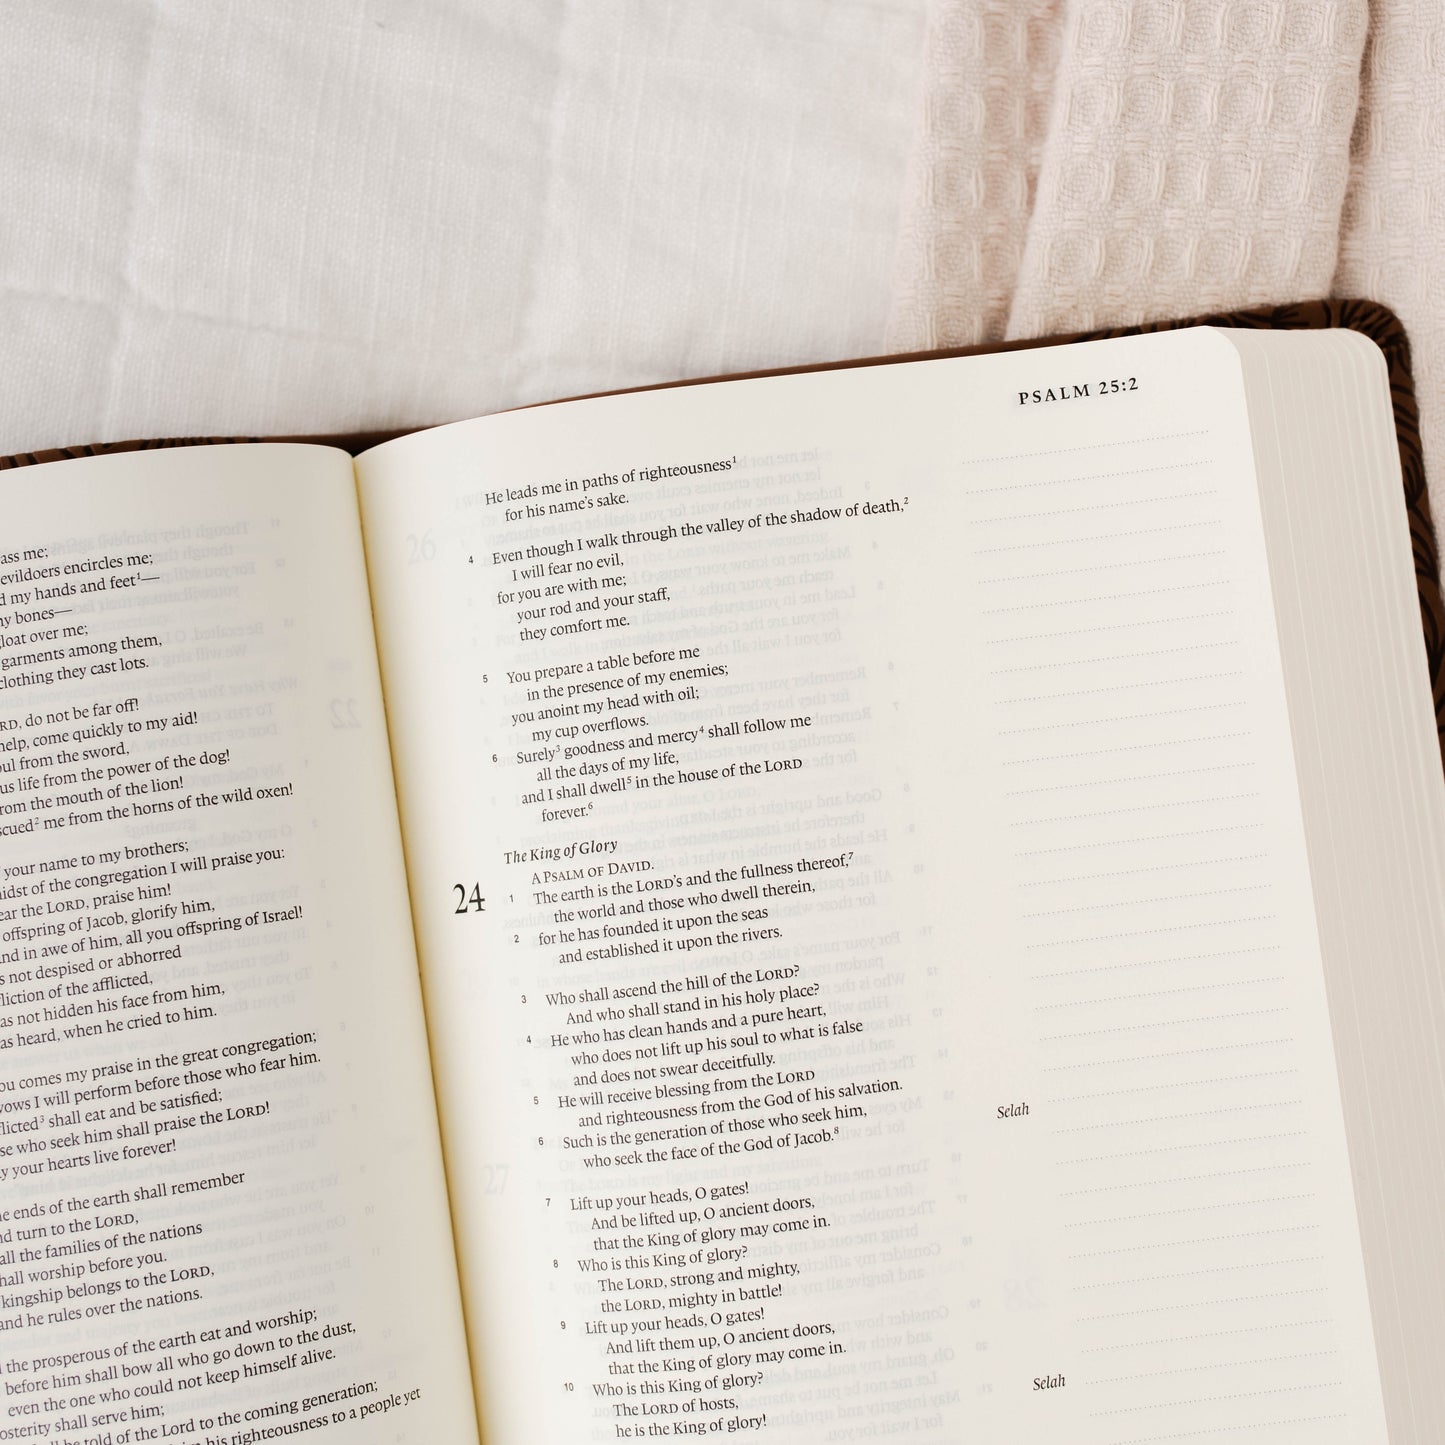 ass me;
evildoers encircles me;
d my hands and feet¹—
my bones—
gloat over me;
garments among them,
clothing they cast lots.
ORD, do not be far off!
help, come quickly to my aid!
oul from the sword,
us life from the power of the dog!
rom the mouth of the lion!
scued² me from the horns of the wild oxen!
your name to my brothers;
idst of the congregation I will praise you:
ear the LORD, praise him!
offspring of Jacob, glorify him,
nd in awe of him, all you offspring of Israel!
s not despised or abhorred
fliction of the afflicted,
as not hidden his face from him,
as heard, when he cried to him.
ou comes my praise in the great congregation;
vows I will perform before those who fear him.
flicted³ shall eat and be satisfied;
se who seek him shall praise the LORD!
y your hearts live forever!
e ends of the earth shall remember
nd turn to the LORD,
all the families of the nations
hall worship before you.
kingship belongs to the LORD,
and he rules over the nations.
l the prosperous of the earth eat and worship;
before him shall bow all who go down to the dust,
even the one who could not keep himself alive.
osterity shall serve him;
be told of the Lord to the coming generation;
his righteousness to a people yet
PSALM 25:2
He leads me in paths of righteousness¹
for his name's sake.
4 Even though I walk through the valley of the shadow of death,²
I will fear no evil,
for you are with me;
your rod and your staff,
they comfort me.
5 You prepare a table before me
in the presence of my enemies;
you anoint my head with oil;
my cup overflows.
6 Surely³ goodness and mercy⁴ shall follow me
all the days of my life,
and I shall dwell⁵ in the house of the LORD
forever.⁶
The King of Glory
A PSALM OF DAVID.
24 1 The earth is the LORD's and the fullness thereof,⁷
the world and those who dwell therein,
2 for he has founded it upon the seas
and established it upon the rivers.
3 Who shall ascend the hill of the LORD?
And who shall stand in his holy place?
4 He who has clean hands and a pure heart,
who does not lift up his soul to what is false
and does not swear deceitfully.
5 He will receive blessing from the LORD
and righteousness from the God of his salvation.
6 Such is the generation of those who seek him,
who seek the face of the God of Jacob.⁸ Selah
7 Lift up your heads, O gates!
And be lifted up, O ancient doors,
that the King of glory may come in.
8 Who is this King of glory?
The LORD, strong and mighty,
the LORD, mighty in battle!
9 Lift up your heads, O gates!
And lift them up, O ancient doors,
that the King of glory may come in.
10 Who is this King of glory?
The LORD of hosts,
he is the King of glory! Selah